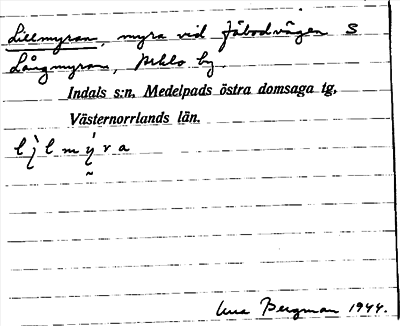 Lillmyran, myra vid fäbodvägen S
Långmyran, by.
Indals s:n, Medelpads östra domsaga tg,
Västernorrlands län.
Bergman 1944.